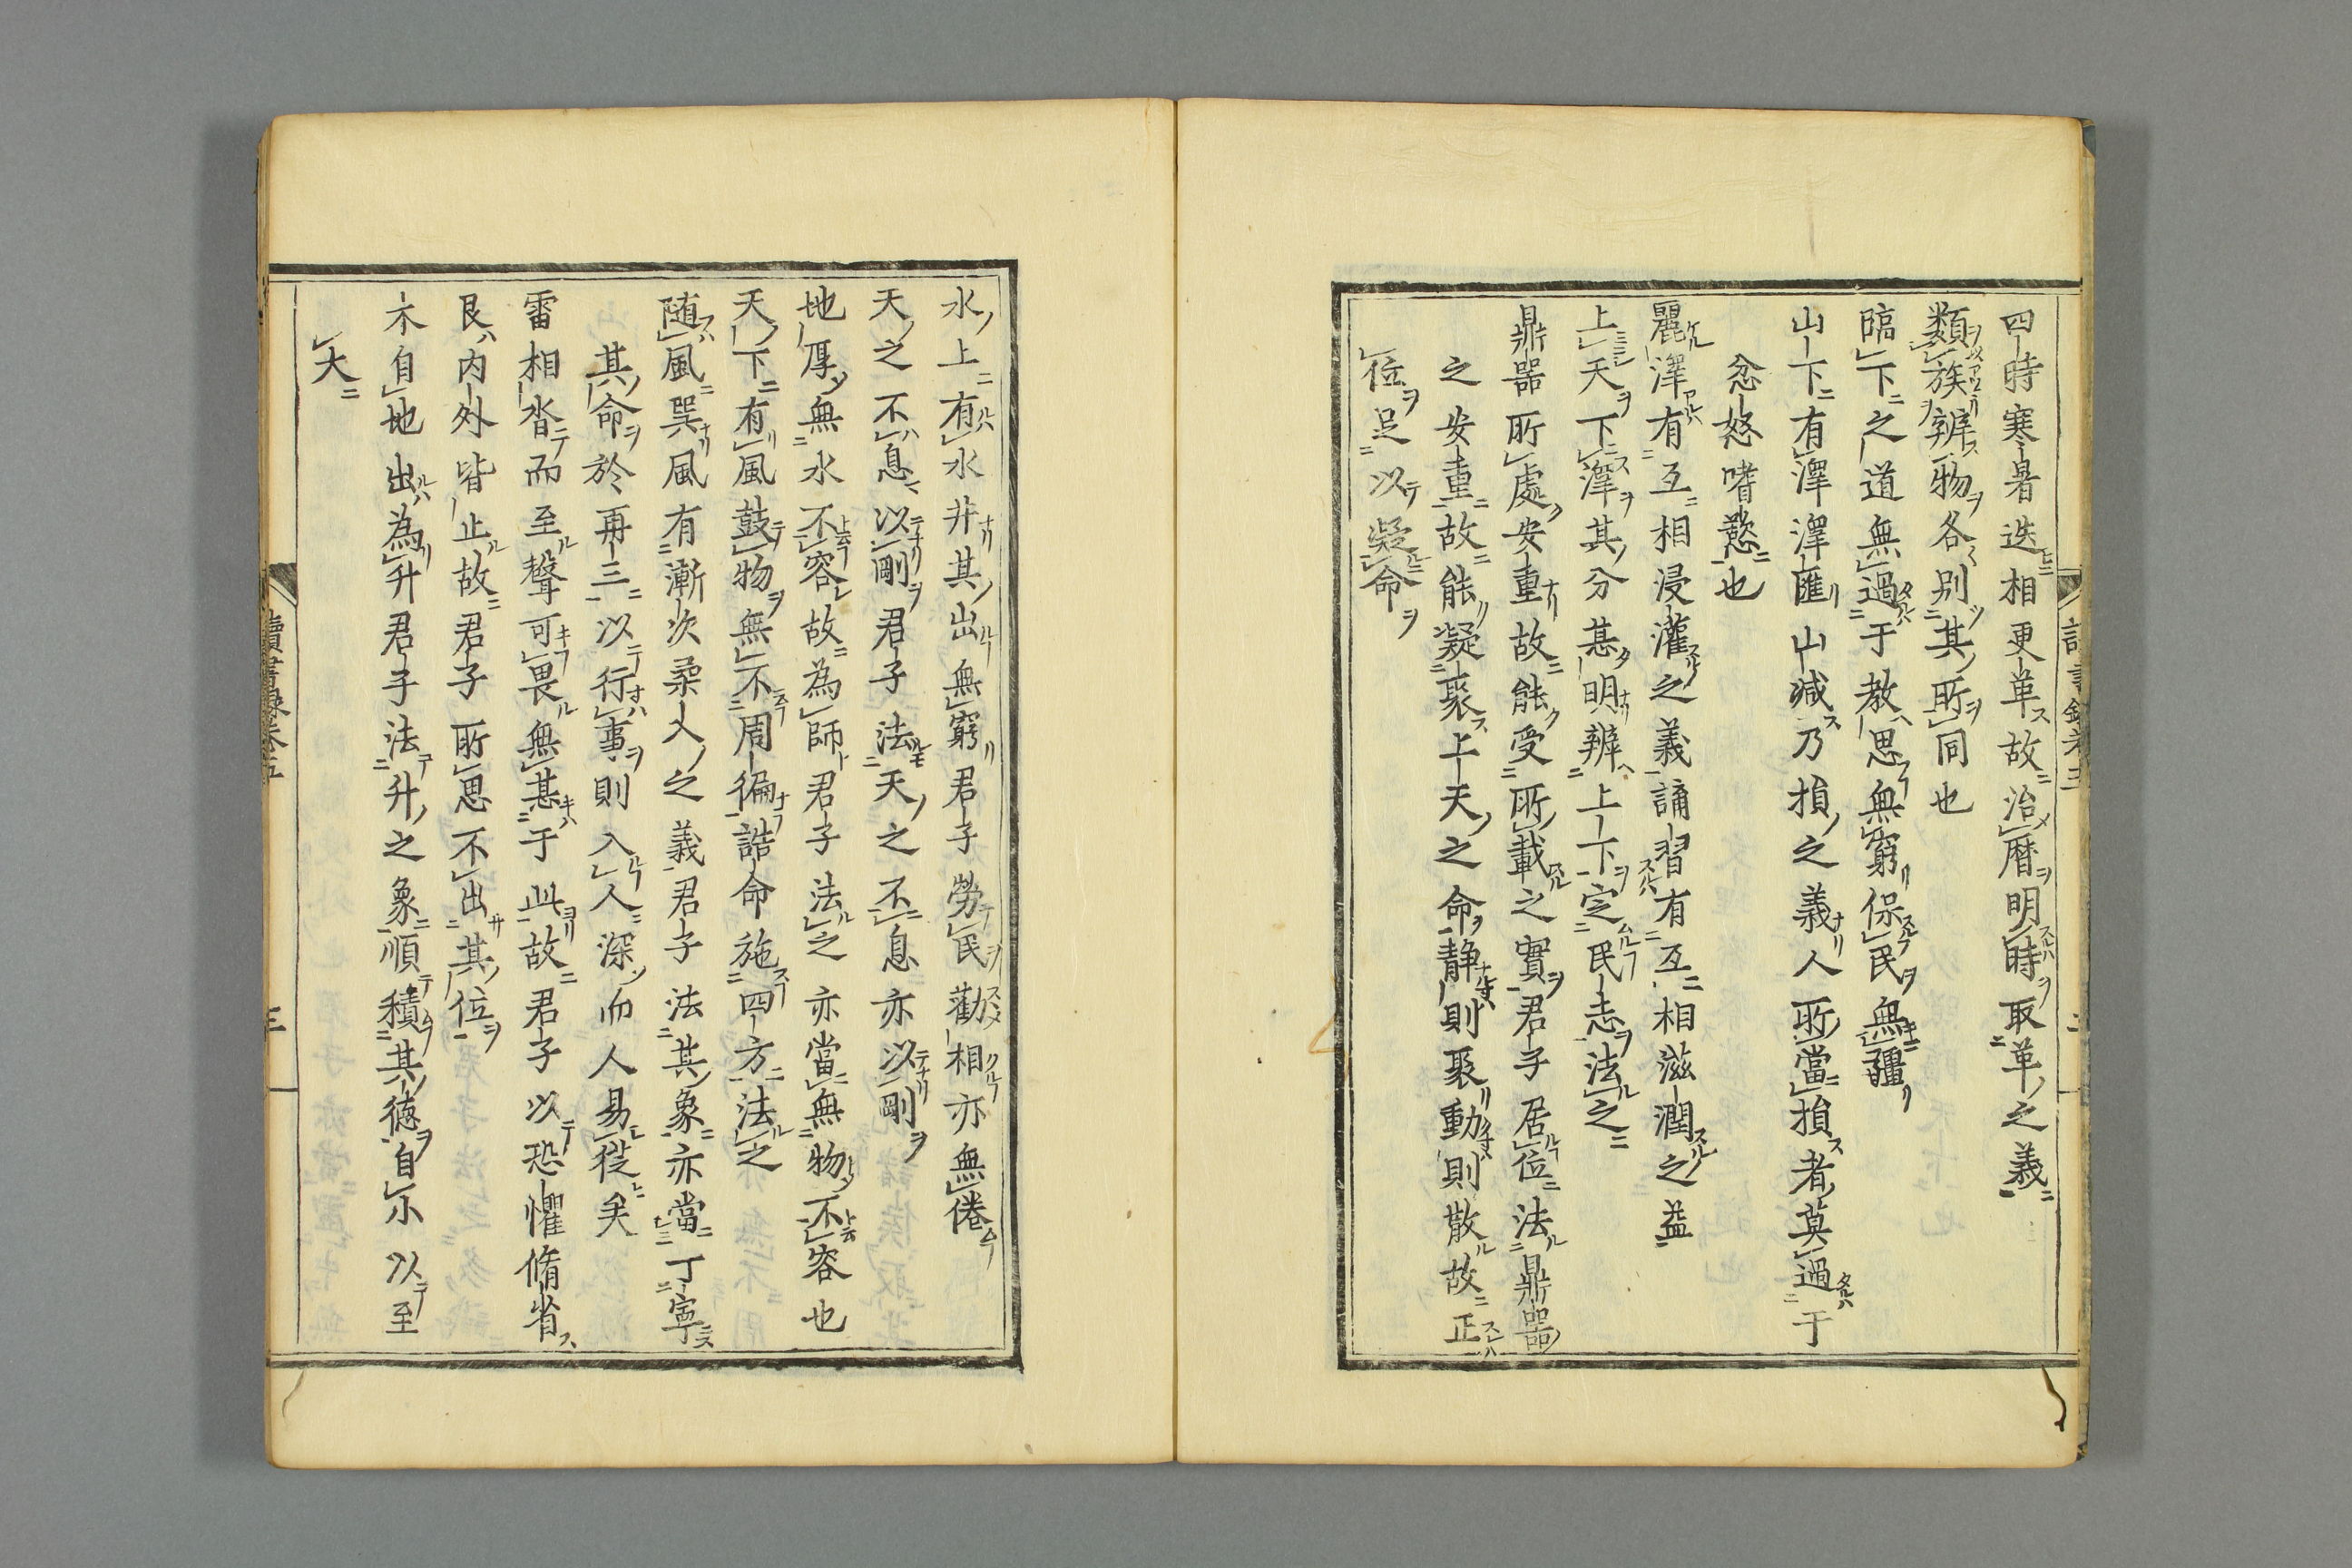 四時寒暑迭相更革故治暦明時取革之義
類族辨物各別其所同也
臨下之道無過于教思無窮保民無疆
山下有澤澤匯山減乃損之義人所當損者莫過于
忿怒嗜慾也
麗澤有互相浸灌之義誦習有互相滋潤之益
上天下澤其分甚明辨上下定民志法之
鼎器所處安重故能受所載之實君子居位法鼎器
之安重故能凝聚上天之命静則聚動則散故正
位足以凝命
水上有水井其出無窮君子勞民勸相亦無倦
天之不息以剛君子法天之不息亦以剛
地厚無水不容故為師君子法之亦當無物不容也
天下有風鼓物無不周徧誥命施四方法之
随風巽風有漸次柔入之義君子法其象亦當丁寧
其命於再三以行事則入人深而人易從矣
雷相沓而至聲可畏無甚于此故君子以恐懼脩省
艮内外皆止故君子所思不出其位
木自地出為升君子法升之象順積其徳自小以至
大
讀書録卷五
三